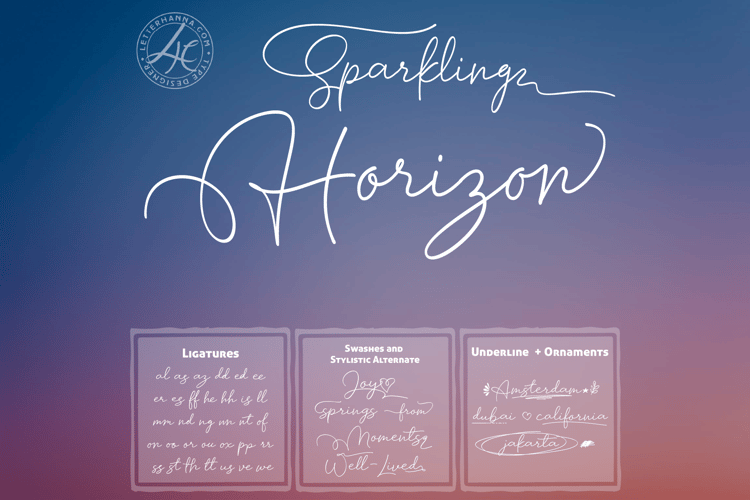 LETTERHANNA.COM
LH
• TYPE DESIGNER •
Sparkling
Horizon
Ligatures
al as az dd ed ee
er es ff he hh is ll
mm nd ng nn nt of
on oo or ou ox pp rr
ss st th tt us ve we
Swashes and
Stylistic Alternate
Joy
Springs from
Moments
Well-Lived
Underline + Ornaments
Amsterdam
dubai ♡ california
jakarta